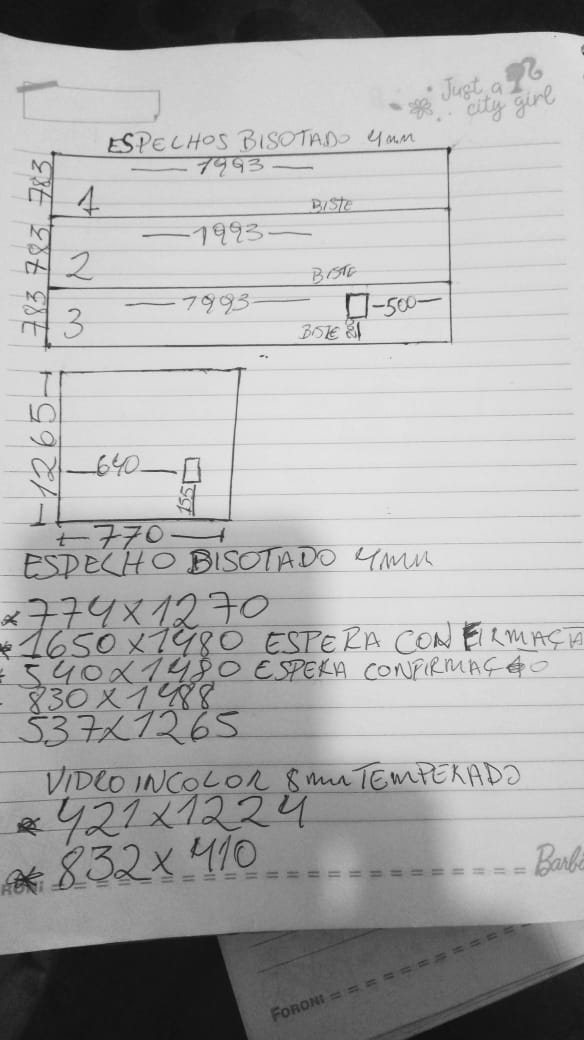 Just a
city girl
ESPELHOS BISOTADO 4mm
783
1993
1
BISTE
783
1993
2
BISTE
783
1993
3
500
BISTE
1265
640
155
770
ESPELHO BISOTADO 4mm
774x1270
1650x1480 ESPERA CONFIRMAÇA
540x1480 ESPERA CONFIRMAÇÃO
830x1488
537x1265
VIDRO INCOLOR 8mm TEMPERADO
421x1224
832x410
Barbi
FORONI
FORONI